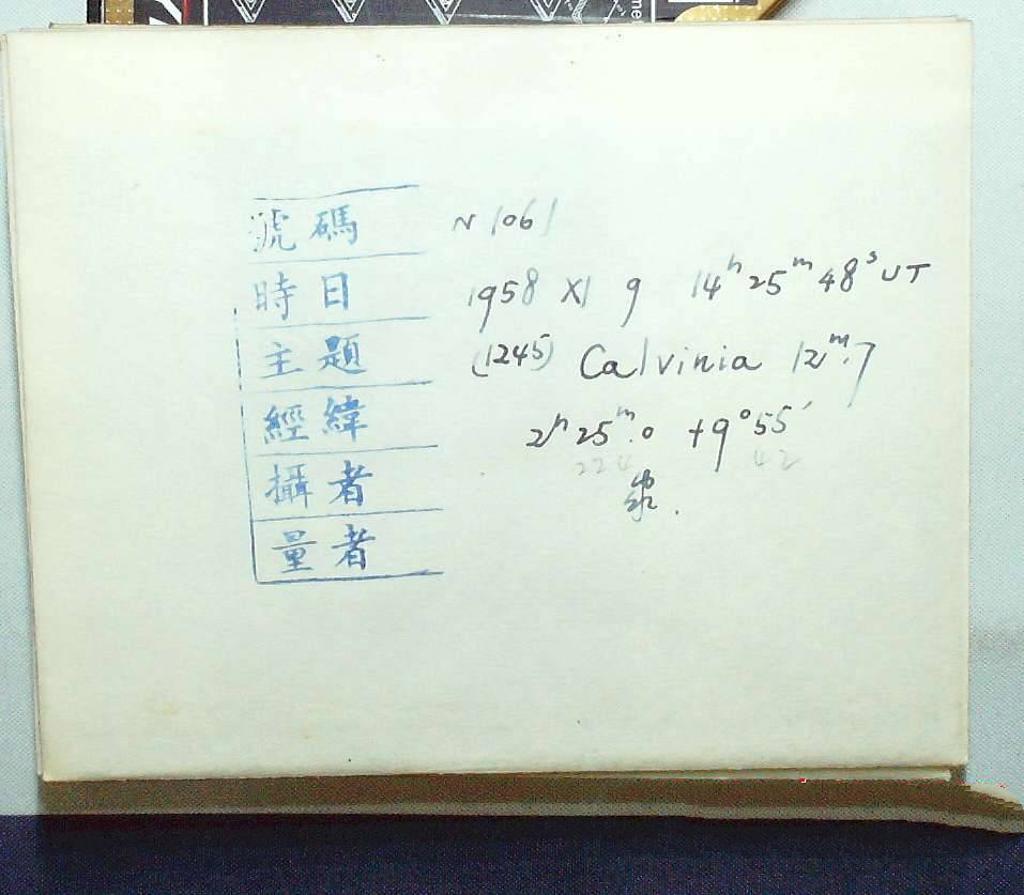 號碼 N 1061
時日 1958 XI 9 14ʰ 25ᵐ 48ˢ UT
主題 (1245) Calvinia 12ᵐ.7
經緯 2ʰ 25ᵐ.0 +9°55′
224 42
攝者
量者